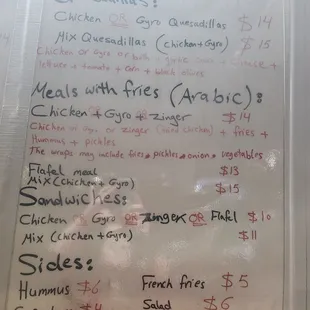 Chicken OR Gyro Quesadillas $14
Mix Quesadillas (chicken+Gyro) $15
Chicken or Gyro or both +
lettuce + tomato + corn +
Meals with fries (Arabic):
Chicken OR Gyro OR Zinger $14
Chicken or Gyro or Zinger (fried chicken) + fries +
Hummus + pickles
The wraps may include fries, pickles, onion, vegetables
Flafel meal $13
Mix (chicken+Gyro) $15
Sandwiches:
Chicken OR Gyro OR Zinger OR Flafel $10
Mix (chicken+Gyro) $11
Sides:
Hummus $6 French fries $5
$4 Salad $6